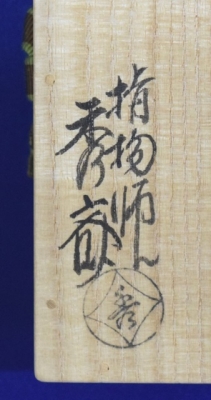 指物師
秀斎
秀